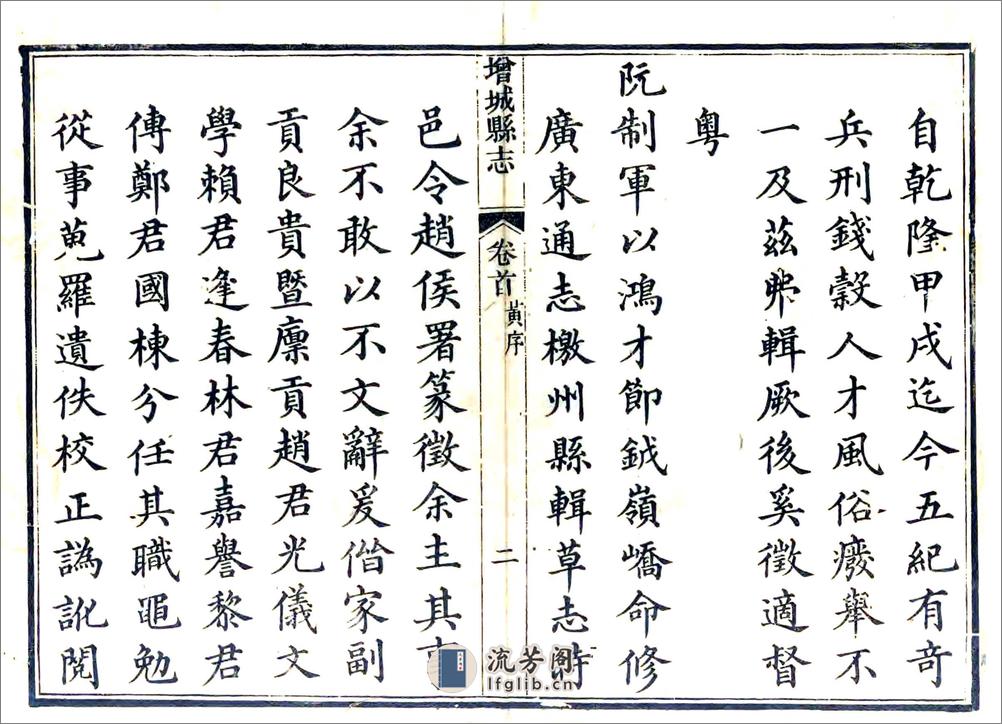 自乾隆甲戌迄今五紀有奇
兵刑錢穀人才風俗癈舉不
一及茲弗輯厥後奚徵適督
粵
阮制軍以鴻才節鉞嶺嶠命修
廣東通志檄州縣輯草志時
增城縣志
卷首
黃序
二
邑令趙侯署篆徵余主其
余不敢以不文辭爰偕家副
貢良貴暨廩貢趙君光儀文
學賴君逢春林君嘉譽黎君
傅鄭君國棟分任其職黽勉
從事蒐羅遺佚校正譌訛閱
流芳阁
lfglib.cn